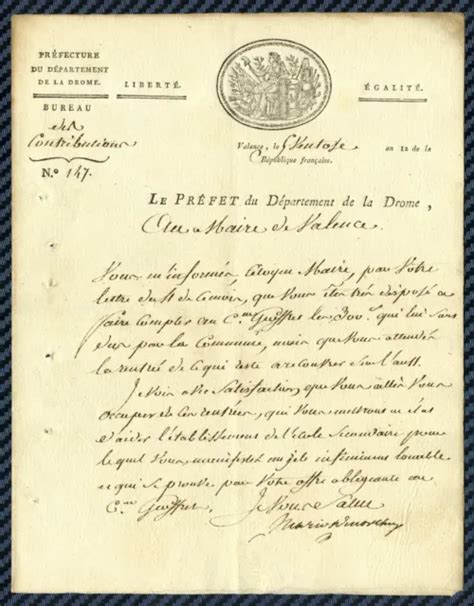 PRÉFECTURE
DU DÉPARTEMENT
DE LA DROME.
BUREAU
des
Contributions
N.º 147.
LIBERTÉ.
ÉGALITÉ.
Valence, le 5 Ventose an 12 de la
République française.
LE PRÉFET du Département de la Drome,
Au Maire de Valence.
Vous m'informés, Citoyen Maire, par Votre
lettre du de ce mois, que Vous êtes disposé a
faire compter au C.en les 300 qui lui sont
dus par la Commune, mais que Vous attendés
la rentrée de ce qui reste a recouvrer
Je Vois avec Satisfaction, que Vous allés Vous
occuper de ces rentrées, qui Vous mettrons
d'aider l'établissement de l'école Secondaire pour
lequel Vous manifestés un zèle infiniment louable
et qui se prouve par Votre offre obligeante au
C.en
Je Vous Salue